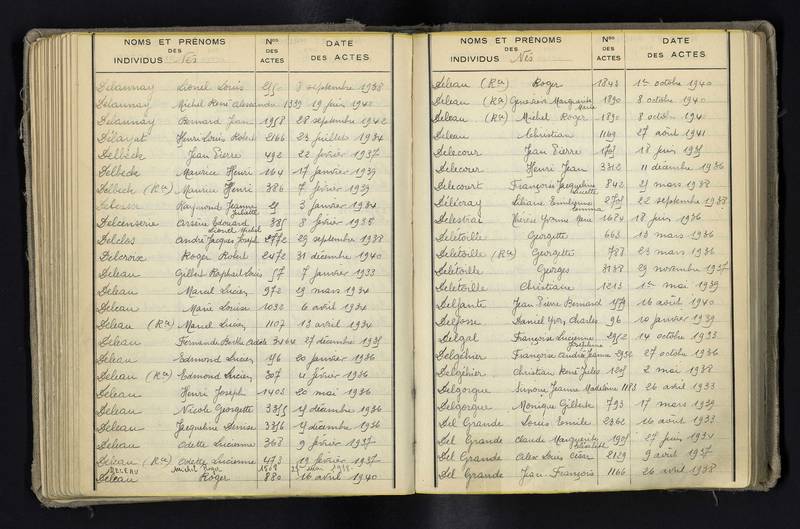 NOMS ET PRÉNOMS DES INDIVIDUS Nés Nos DES ACTES DATE DES ACTES
Delaunay Lionel Louis 8 septembre 1938
Delaunay Michel René 1339 19 juin 1940
Delaunay Bernard Jean 1958 28 septembre 1942
Délayat Henri Louis Robert 2166 23 juillet 1934
Delbeck Jean Pierre 492 22 février 1937
Delbeck Maurice Henri 164 17 janvier 1939
Delbeck (Rce) Maurice Henri 386 7 février 1939
Raymond Jeanne Juliette 29 3 janvier 1934
Delcenserie Arsène Edouard 385 8 février 1938
Delclos André Jacques Joseph Lionel Michel 2772 29 septembre 1938
Delcroix Roger Robert 2472 31 décembre 1940
Deleau Gilbert Raphaël Louis 57 7 janvier 1933
Deleau Marcel Lucien 972 29 mars 1934
Deleau Marie Louise 1032 6 avril 1934
Deleau (Rce) Marcel Lucien 1107 13 avril 1934
Deleau Fernande Berthe 27 décembre 1935
Deleau Edmond Lucien 196 20 janvier 1936
Deleau (Rce) Edmond Lucien 307 4 février 1936
Deleau Henri Joseph 1403 20 mai 1936
Deleau Nicole Georgette 3355 15 décembre 1936
Deleau Jacqueline Denise 3356 15 décembre 1936
Deleau Odette Lucienne 368 9 février 1937
Deleau (Rce) Odette Lucienne 473 19 février 1937
DELEAU Michel Roger 1568 mai 1938
Deleau Roger 880 16 avril 1940
NOMS ET PRÉNOMS DES INDIVIDUS Nés Nos DES ACTES DATE DES ACTES
Deleau (Rce) Roger 1843 1er octobre 1940
Deleau (Rce) Geneviève Marguerite Marie 1890 8 octobre 1940
Deleau (Rce) Michel Roger 1890 8 octobre 1940
Deleau Christian 1169 27 août 1941
Delecour Jean Pierre 1765 18 juin 1935
Delecour Henri Jean 3312 11 décembre 1936
Delecourt Françoise Jacqueline Lucette 842 25 mars 1938
Liliane Emilienne 2705 22 septembre 1938
Delestrai Yvonne 1684 18 juin 1936
Delétoille Georgette 663 13 mars 1936
Delétoille (Rce) Georgette 788 23 mars 1936
Delétoille Georges 3138 29 novembre 1937
Delétoille Christiane 1213 1er mai 1939
Delfante Jean Pierre Bernard 1579 16 août 1940
Delfosse Daniel Yvon Charles 96 10 janvier 1939
Delgal Françoise Lucienne Joséphine 2952 14 octobre 1933
Delgéhier Françoise Andrée Jeanne 2956 27 octobre 1936
Delgéhier Christian René Jules 1205 2 mai 1938
Delgorgue Simone Jeanne Madeleine 1183 26 avril 1933
Delgorgue Monique Gilberte 793 17 mars 1939
Del Grande Louis Emile 2362 16 août 1933
Del Grande Claude Marguerite 1905 27 juin 1934
Del Grande Alex Louis César 2129 9 avril 1937
Del Grande Jean François 1166 26 avril 1938